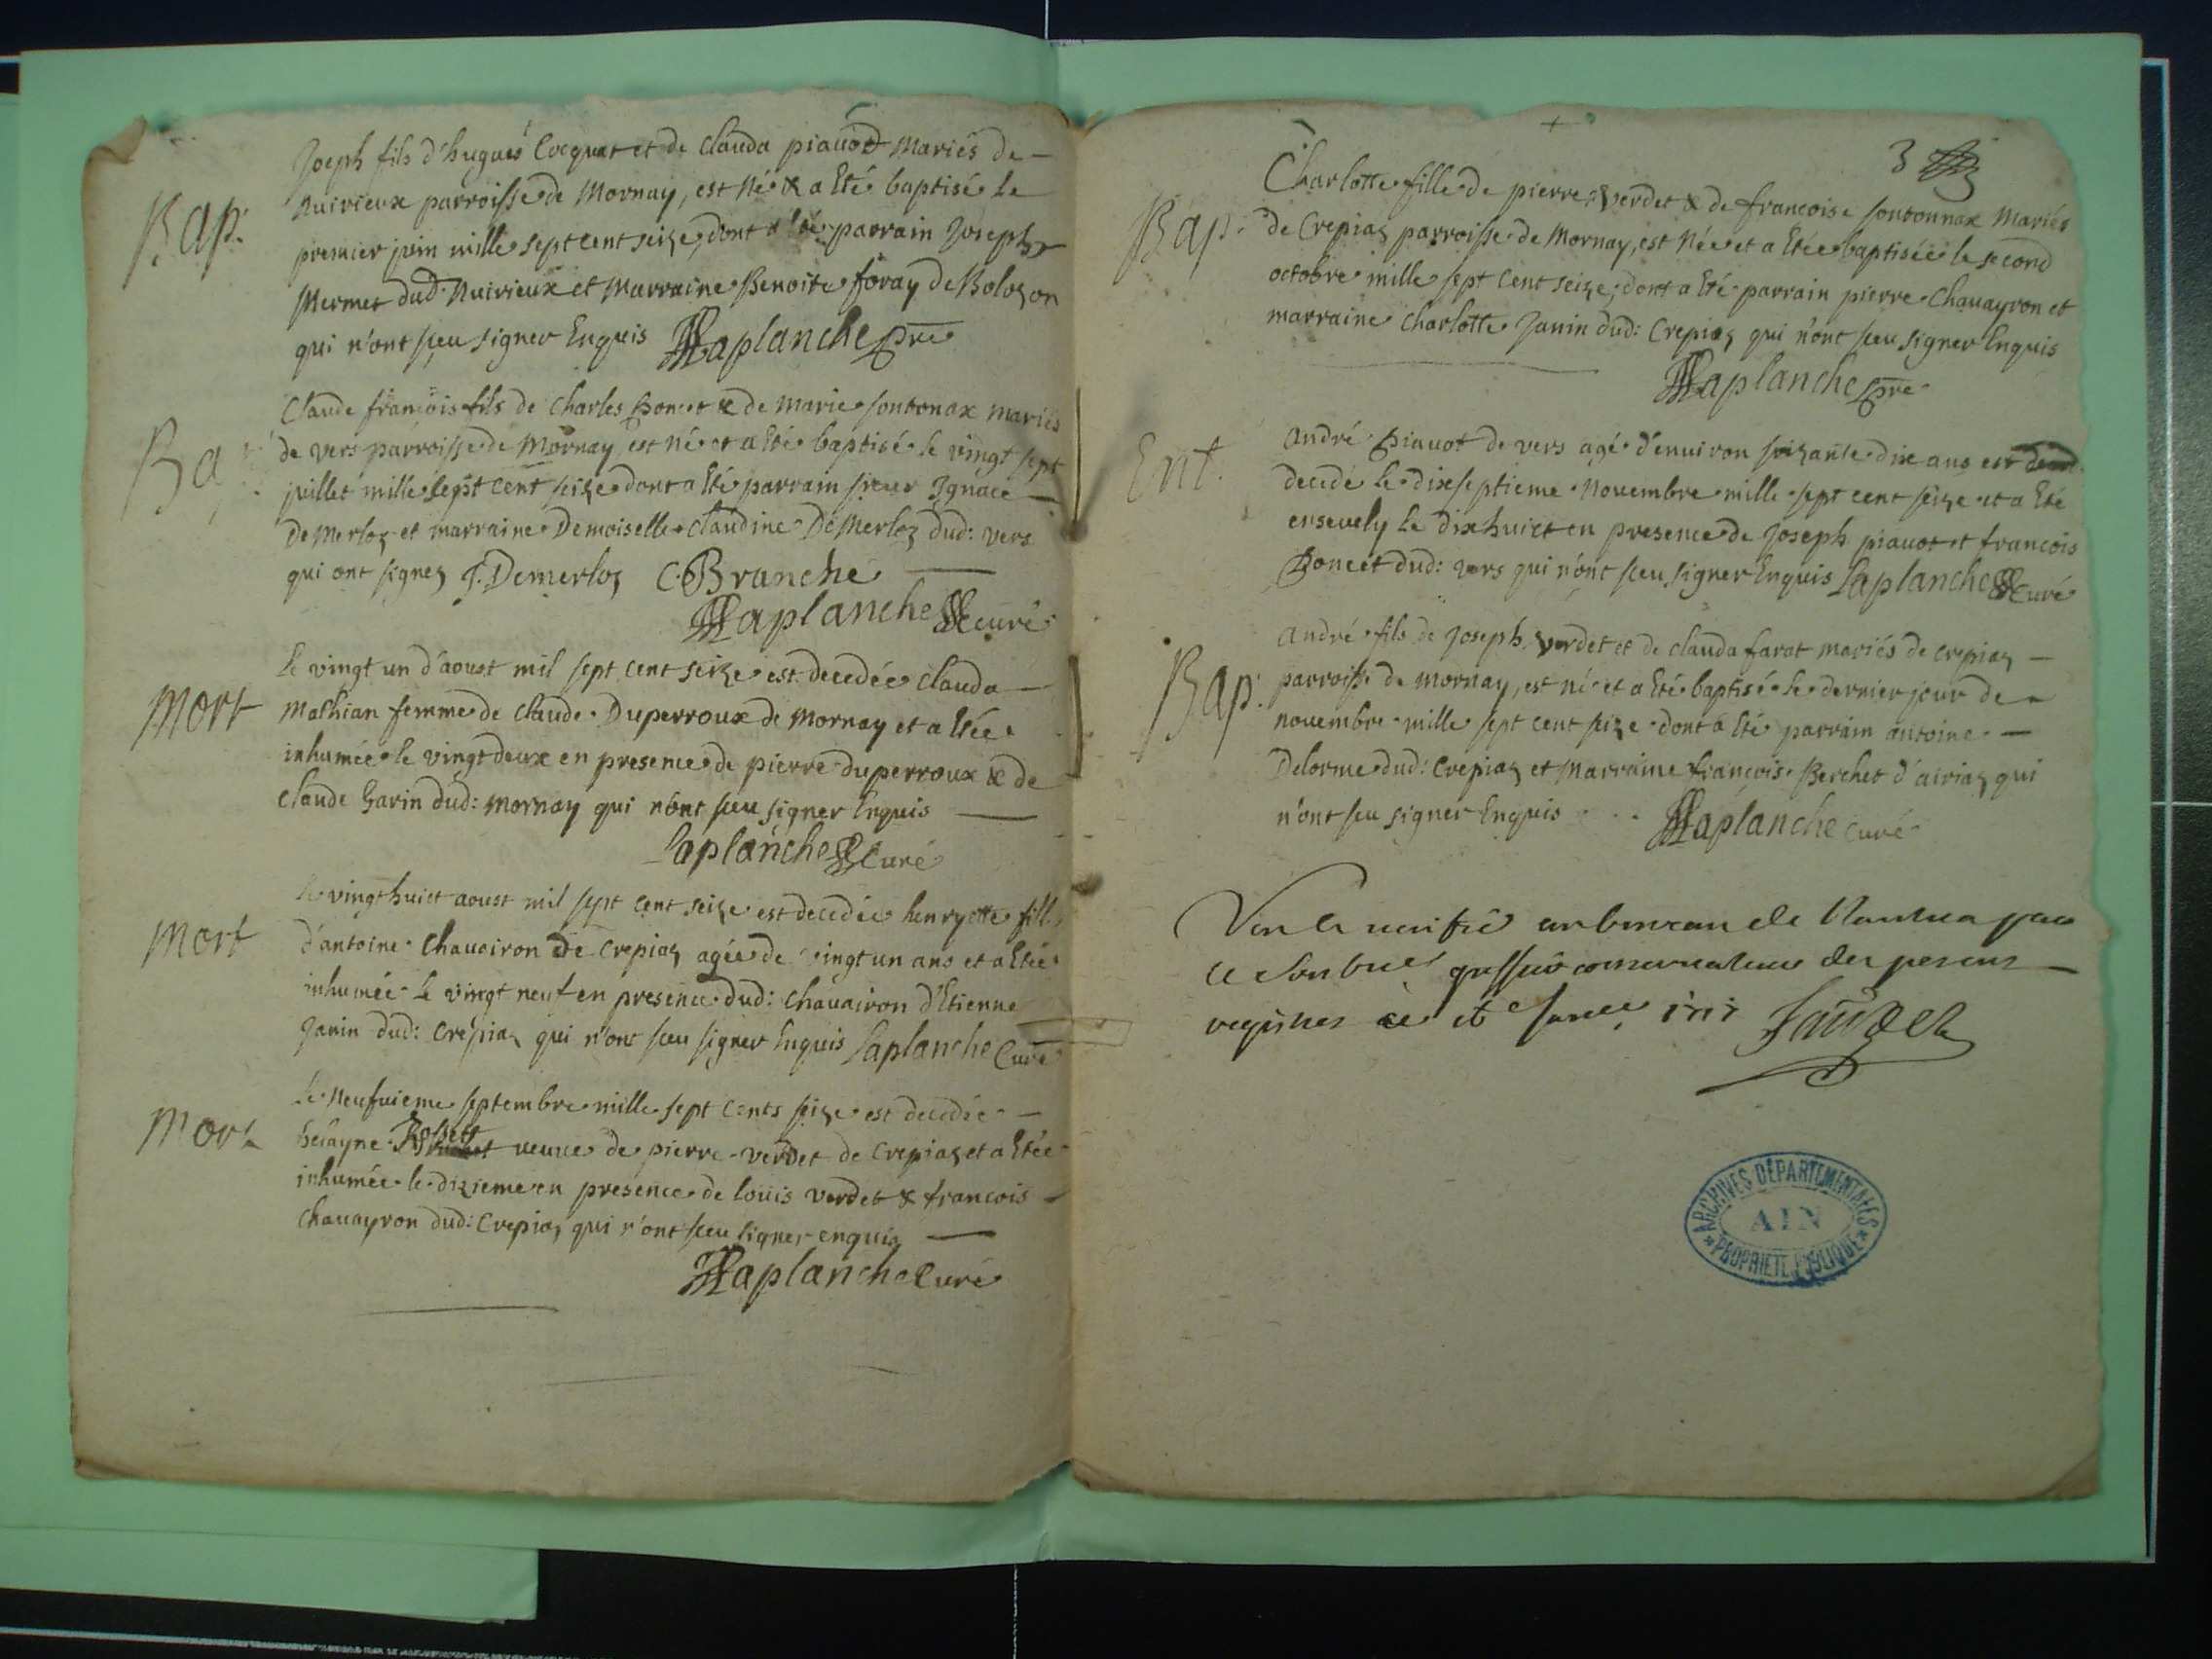 Bap.
Joseph fils d'hugues Cocquat et de Clauda piauot Mariés de
Nuirieux parroisse de Mornay, est Né & a Eté baptisé le
premier juin mille sept cent seize, dont a été parrain Joseph
Mermet dud: Nuirieux et Marraine Benoite foray de Bolozon
qui n'ont sçeu signer Enquis Laplanche pre
Bap
Claude françois fils de Charles Poncet & de Marie sontonax mariés
de vers parroisse de Mornay, est né et a Eté baptisé le vingt sept
juillet mille sept cent seize dont a Eté parrain sieur Ignace
De Merloz et marraine Demoiselle claudine De Merloz dud: vers
qui ont signez J. Demerloz C. Branche
Laplanche curé
Mort
le vingt un d'aoust mil sept cent seize est decedée clauda
Mathian femme de claude Duperroux de Mornay et a Etée
inhumée le vingt deux en presence de pierre duperroux & de
claude Garin dud: Mornay qui n'ont sceu signer Enquis
Laplanche Curé
Mort
le vingt huict aoust mil sept cent seize est decedée henryette fille
d'antoine Chauairon de Crepiaz agée de vingt un ans et a Etée
inhumée le vingt neuf en presence dud: Chauairon d'Etienne
Janin dud: Crepiaz qui n'ont sceu signer Enquis Laplanche Curé
Mort
le Neufuieme septembre mille sept cents seize est decedée
veuue de pierre verdet de Crepiaz et a Etée
inhumée le dizieme en presence de loüis verdet & françois
Chauayron dud: Crepiaz qui n'ont sceu signer enquis
Laplanche Curé
3
Bap.
Charlotte fille de pierre verdet & de francoise sontonnax Mariés
de Crepiaz parroisse de Mornay, est Née et a Etée baptisée le second
octobre mille sept cent seize, dont a Eté parrain pierre Chauayron et
marraine Charlotte Janin dud: Crepiaz qui n'ont sceu signer Enquis
Laplanche pre
Ent.
André Piauot de vers agé d'enuiron soizante dix ans est
decedé le dix septieme Novembre mille sept cent seize et a Eté
ensevely le dix huict en presence de Joseph piauot et françois
Poncet dud: vers qui n'ont sceu signer Enquis Laplanche Curé
Bap.
André fils de Joseph verdet et de clauda farat mariés de crepiaz
parroisse de Mornay, est né et a Eté baptisé le dernier jour de
novembre mille sept cent seize dont a Eté parrain antoine
Delorme dud: Crepiaz et Marraine françois Berchet d'airiaz qui
n'ont seu signer Enquis Laplanche Curé
Veu et verifié au bureau de Nantua par
le greffier conservateur des
registres ce 1717
ARCHIVES DÉPARTEMENTALES
AIN
PROPRIÉTÉ PUBLIQUE